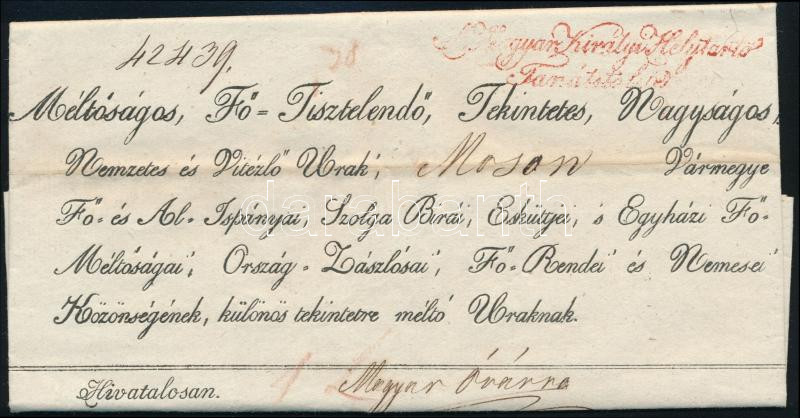 42439.
A Magyar Királyi Helytartó
Tanátstólus
Méltóságos, Fő=Tisztelendő, Tekintetes, Nagyságos,
Nemzetes és Vitézlő Urak, Moson Vármegye
Fő- és Al-Ispányai, Szolga Birái, Esküttjei, s Egyházi Fő-
Méltóságai, Ország-Zászlósai, Fő-Rendei és Nemesei
Közönségének, különös tekintetre méltó Uraknak.
Hivatalosan. Magyar Óvárra
darabanth